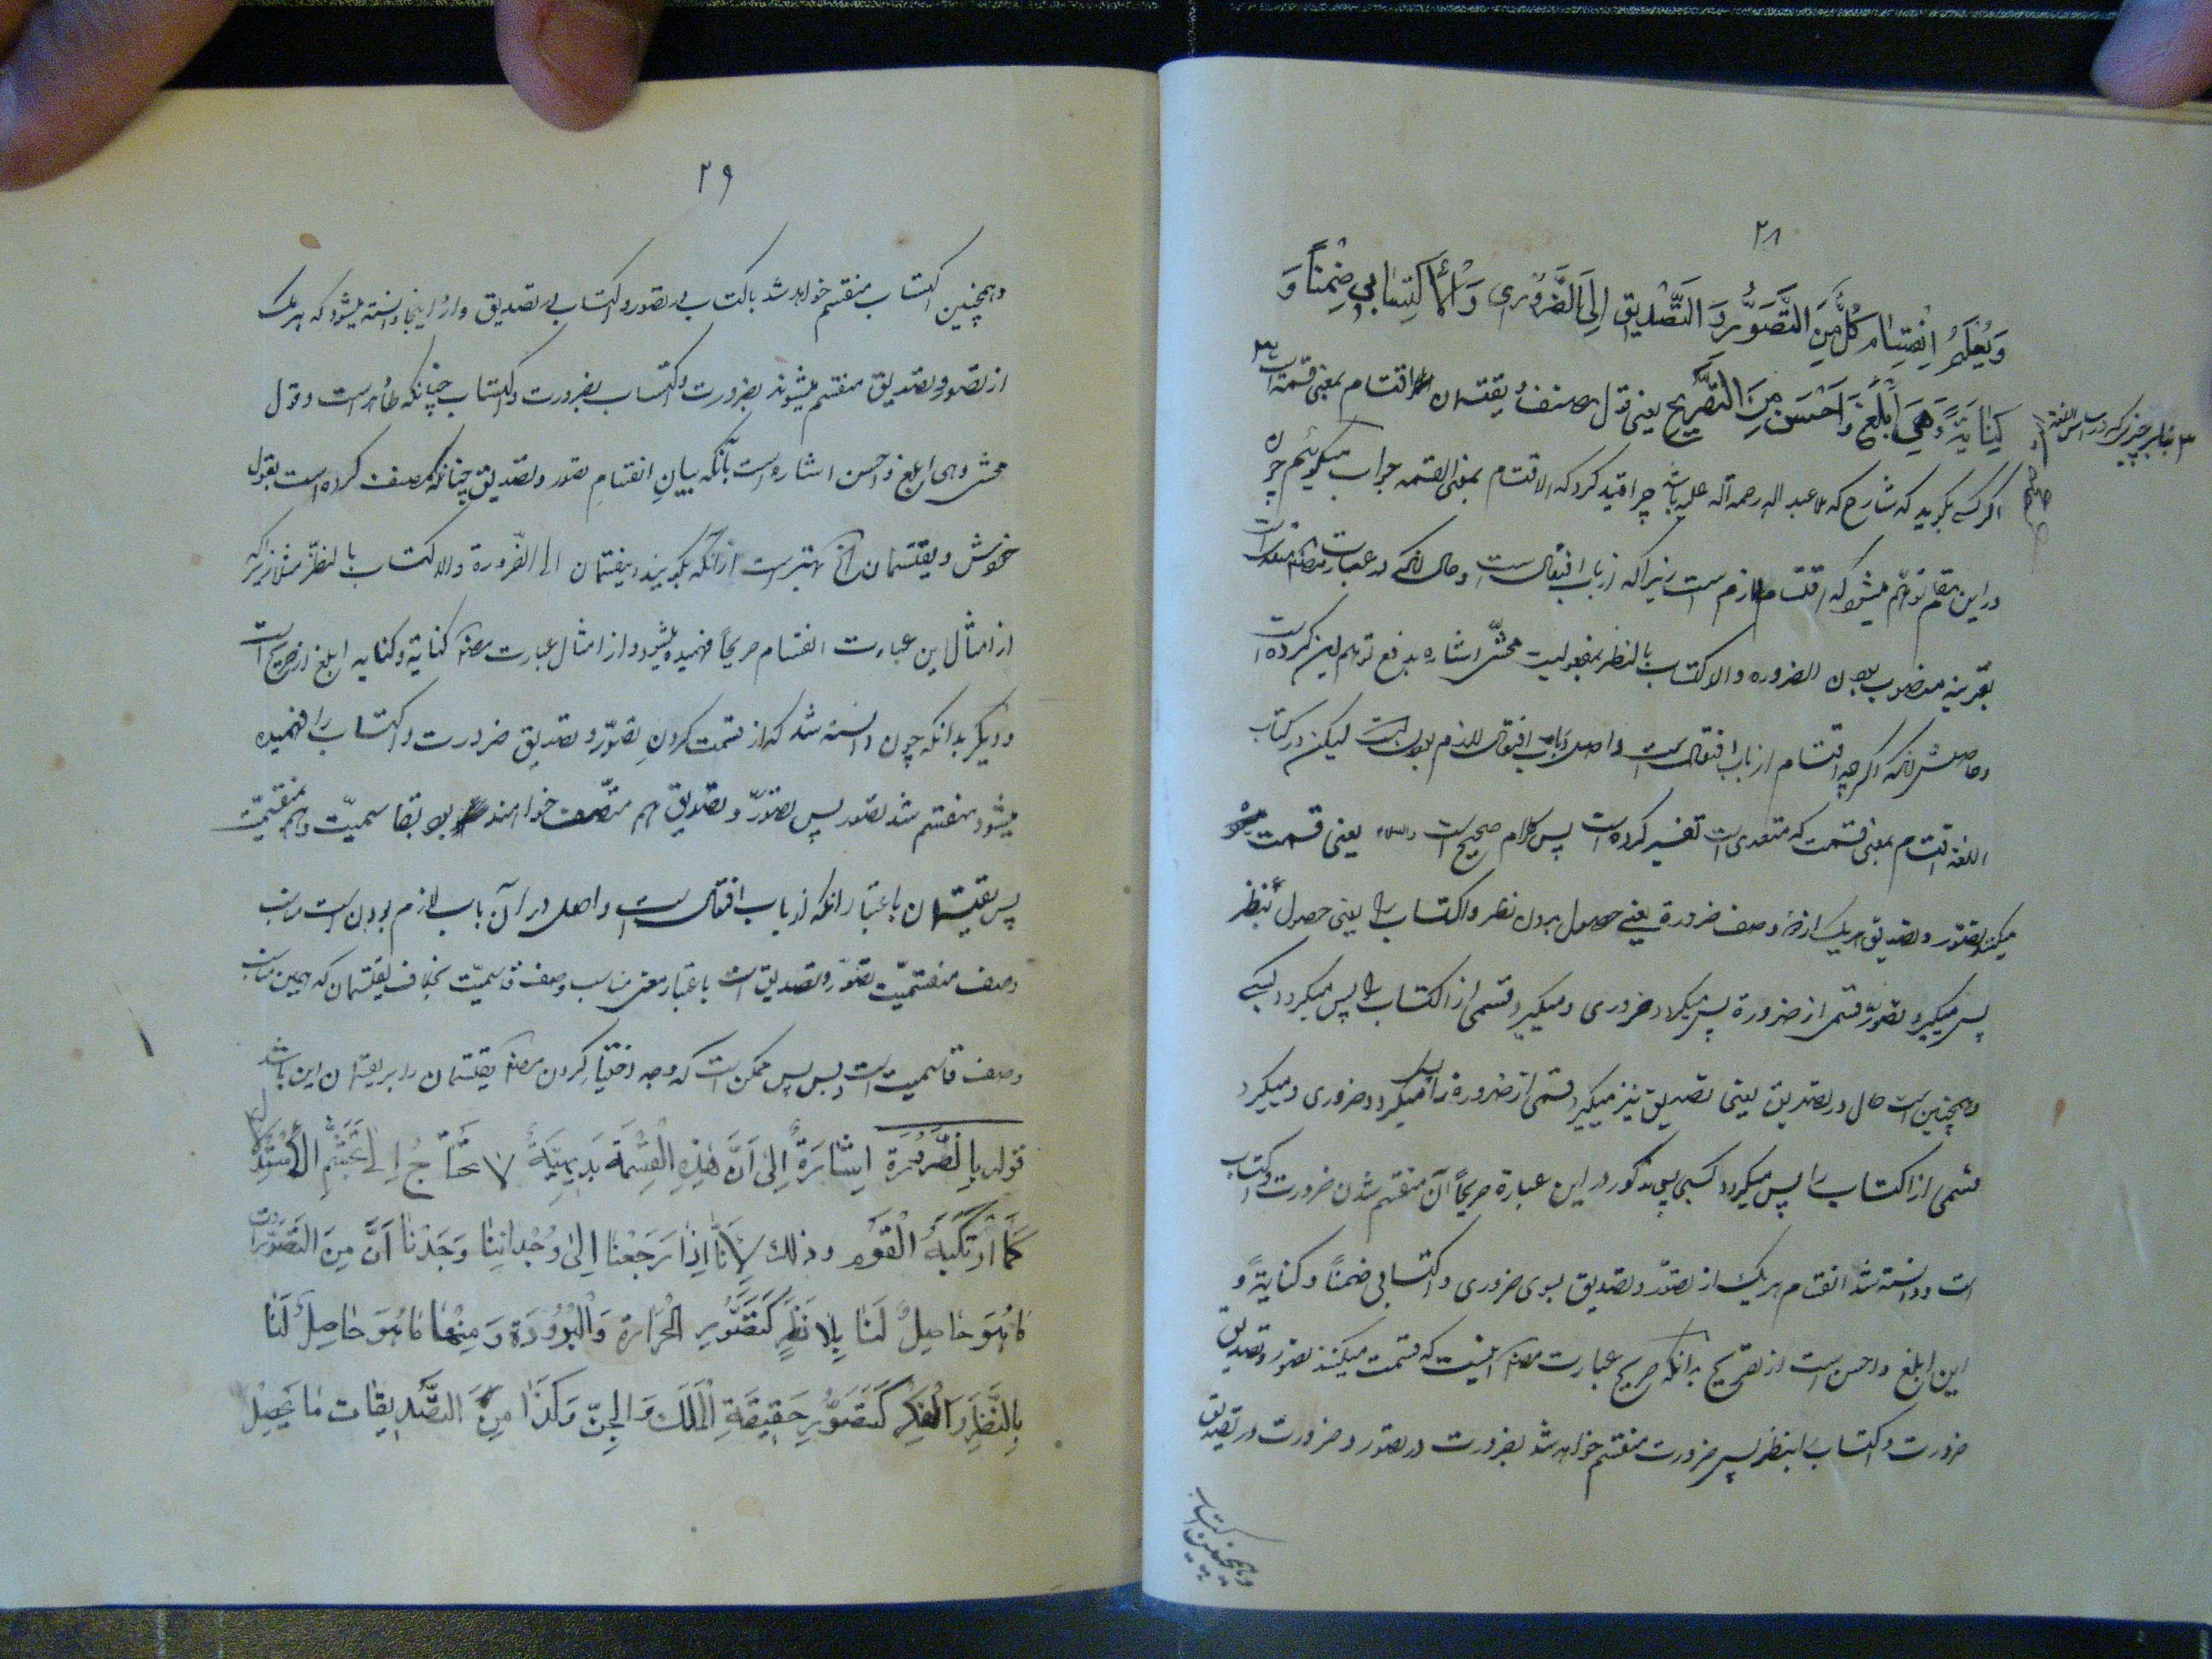 ٢٨
وَيُعْلَمُ اِنْقِسٰامُ كُلٍّ مِنَ التَّصَوُّرِ وَ التَّصْدِيقِ اِلَى الضَّرُورِى وَ الْاِكْتِسٰابِى ضِمْنًا وَ
كِنٰايَةً وَ هِىَ اَبْلَغُ وَ اَحْسَنُ مِنَ التَّصْرِيحِ يعنى قول مصنف يقتسمان اقتسام بمعنى قسمة است
اگر كسى بگويد كه شارح كه ملا عبد الله رحمه الله عليه باشد چرا قيد كرد كه الاقتسام بمعنى القسمه جواب ميگوئيم چون
در اين مقام توهّم ميشود كه اقتسام لازم است زيرا كه از باب افتعال است و حال انكه در عبارت مصنف متعدّى است
بقرينه منصوب بودن الضروره والاكتساب بالنظر بمفعوليت محشّى اشاره بدفع توهم اين كرده است
و حاصلش انكه اگر چه اقتسام از باب افتعال است و اصل در باب افتعال لازم بودن است ليكن در كتاب
اللغه اقتسام بمعنى قسمت كه متعدى است تفسير كرده است پس كلام صحيح است والسلام يعنى قسمت
ميكنند تصوّر و تصديق هريك از وصف ضرورة يعنى حصول بدون نظر و اكتساب را يعنى حصول بنظر
پس ميگيرد تصوّر قسمى از ضرورة پس ميگردد ضرورى و ميگيرد قسمى از اكتساب را پس ميگردد كسبى
و همچنين است حال در تصديق يعنى تصديق نيز ميگيرد قسمى از ضرورة را پس ميگردد ضرورى و ميگيرد
قسمى از اكتساب را پس ميگردد كسبى پس مذكور در اين عبارة صريحاً آن منقسم شدن ضرورت و اكتساب
است و دانسته شد انقسام هريك از تصوّر و تصديق بسوى ضرورى و اكتسابى ضمناً و كنايةً و
اين ابلغ و احسن است از تصريح بدانكه صريح عبارت مصنف اينست كه قسمت ميكنند تصور و تصديق
ضرورت و اكتساب بنظر پس ضرورت منقسم خواهد شد بضرورت در تصوّر و ضرورت در تصديق
و همچنين اكتساب
٢٩
و همچنين اكتساب منقسم خواهد شد باكتساب در تصور و اكتساب در تصديق و از اينجا دانسته ميشود كه هريك
از تصور و تصديق منقسم ميشوند بضرورت و اكتساب بضرورت و اكتساب چنانكه ظاهر است و قول
محشى وهى ابلغ و احسن اشاره است بآنكه بيان انقسام تصور و تصديق چنانكه مصنف كرده است بقول
خودش و يقتسمان الخ بهتر است از آنكه بگويند و ينقسمان الى الضّرورة والاكتساب بالنظر مثلا زيرا كه
از امثال اين عبارت انقسام صريحاً فهميده ميشود و از امثال عبارت مصنف كناية و كنايه ابلغ از صريح است
و ديگر بدانكه چون دانسته شد كه از قسمت كردن تصوّر و تصديق ضرورت و اكتساب را فهميده
ميشود منقسم شد تصور پس تصوّر و تصديق هم متصف خواهند بود بقاسميّت و هم بمنقسميّت
پس يقتسمان باعتبار انكه از باب افتعال است و اصل در آن باب لازم بودن است مناسب
وصف منقسميّت تصوّر و تصديق است باعتبار معنى مناسب وصف قاسميّت بخلاف ينقسمان كه همين مناسب
وصف قاسميت است و بس پس ممكن است كه وجه اختيار كردن مصنف يقتسمان را بر ينقسمان اين باشد
قوله بِالضَّرُورَةِ اِشٰارَةٌ اِلىٰ اَنَّ هٰذِهِ الْقِسْمَةَ بَدِيهِيَّةٌ لاٰ تَحْتٰاجُ اِلىٰ تَجَشُّمِ الْاِسْتِدْلاٰلِ
كَمٰا ارْتَكَبَهُ الْقَوْمُ وَ ذٰلِكَ لِاَنّٰا اِذٰا رَجَعْنٰا اِلىٰ وِجْدٰانِنٰا وَجَدْنٰا اَنَّ مِنَ التَّصَوُّرٰاتِ
مٰا هُوَ حٰاصِلٌ لَنٰا بِلاٰ نَظَرٍ كَتَصَوُّرِ الْحَرٰارَةِ وَ الْبُرُودَةِ وَ مِنْهٰا مٰا هُوَ حٰاصِلٌ لَنٰا
بِالنَّظَرِ وَ الْفِكْرِ كَتَصَوُّرِ حَقِيقَةِ الْمَلَكِ وَ الْجِنِّ وَ كَذٰا مِنَ التَّصْدِيقٰاتِ مٰا يَحْصِلُ